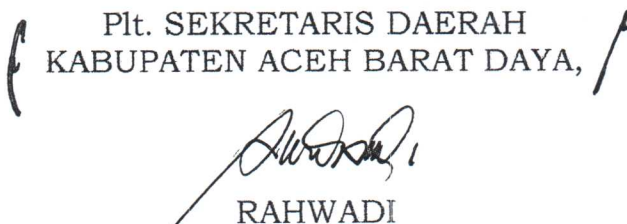 Plt. SEKRETARIS DAERAH
KABUPATEN ACEH BARAT DAYA,
RAHWADI